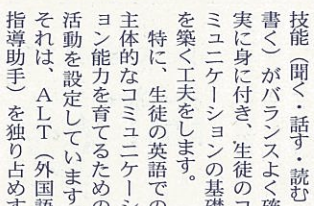 技能（聞く・話す・読む
書く）がバランスよく確
実に身に付き、生徒のコ
ミュニケーションの基礎
を築く工夫をします。
特に、生徒の英語での
主体的なコミュニケーシ
ョン能力を育てるための
活動を設定しています
それは、ALT（外国語
指導助手）を独り占めす